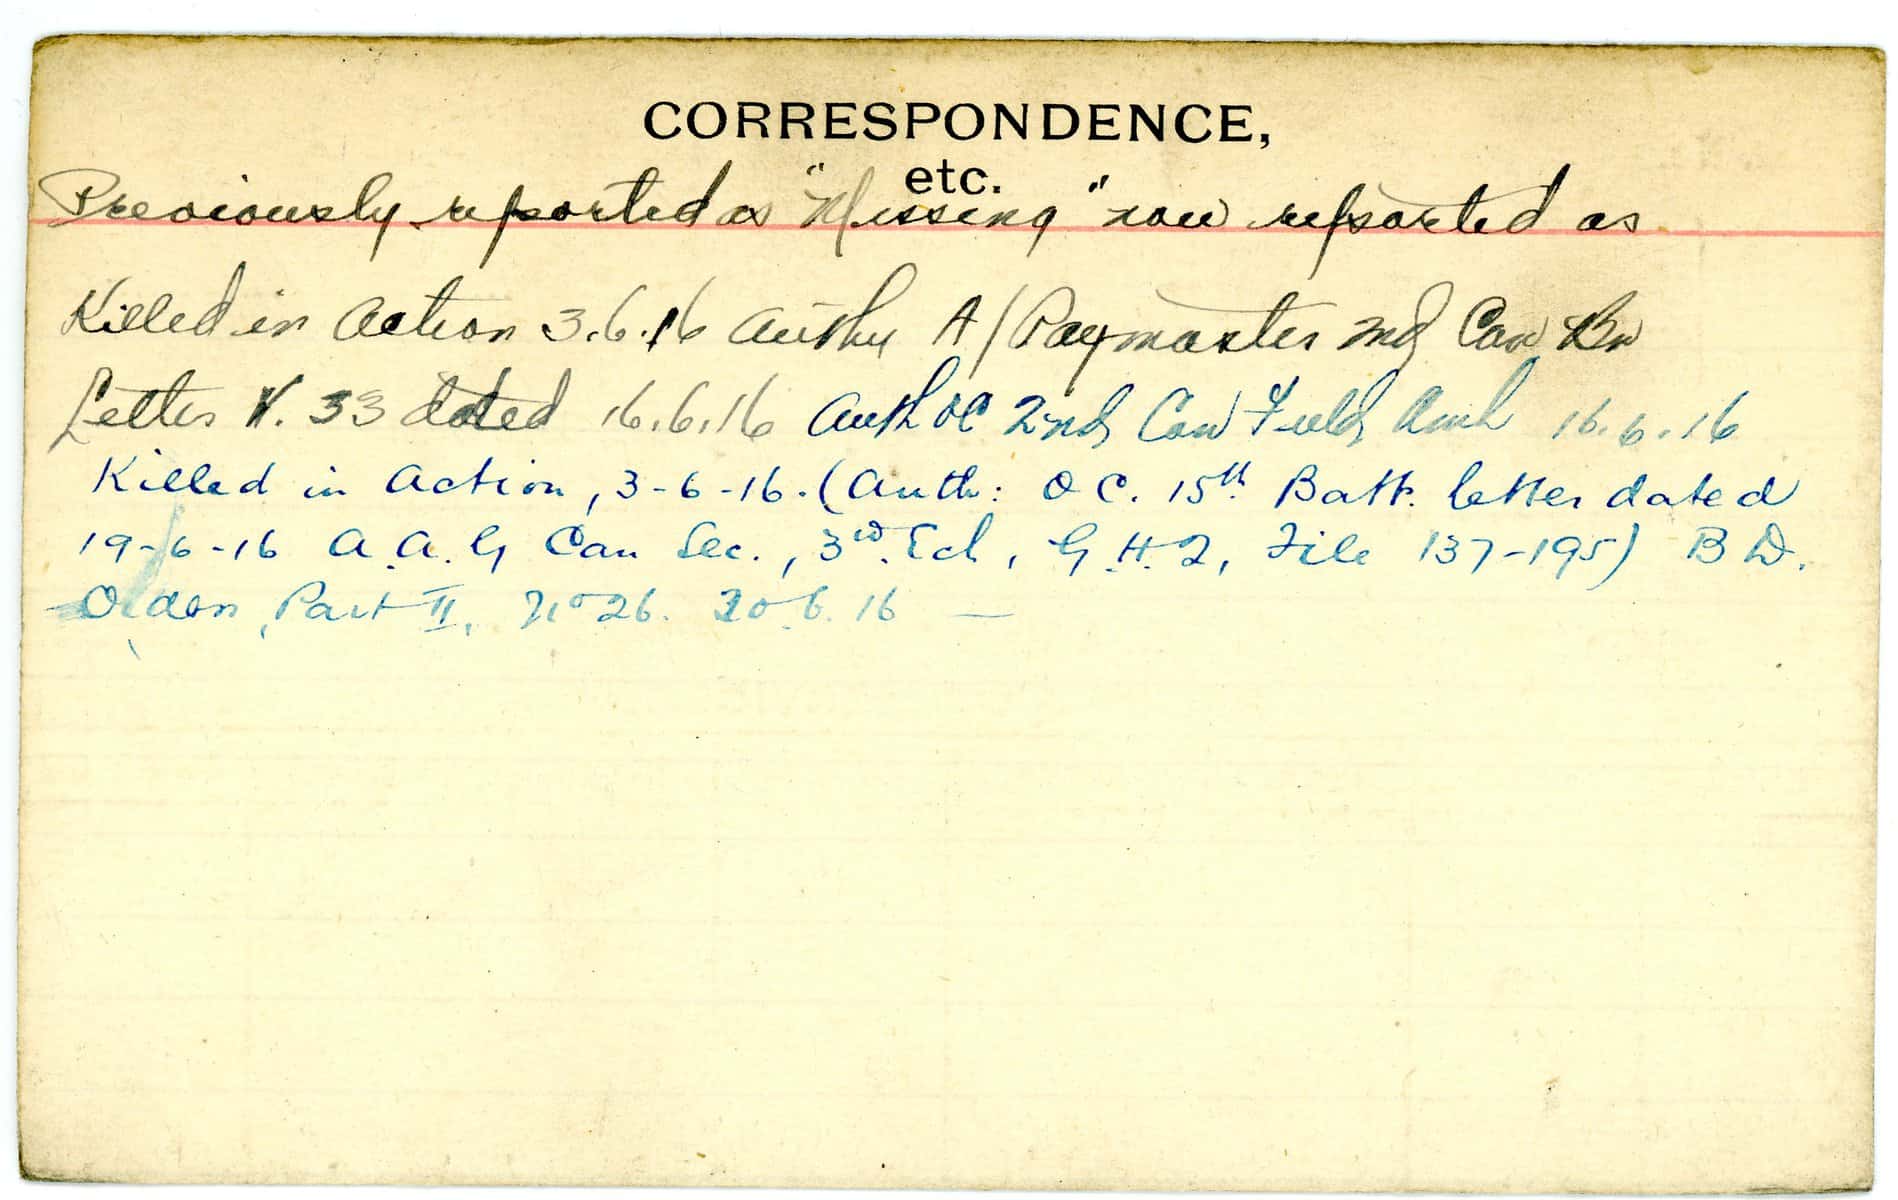 CORRESPONDENCE,
etc.
Previously reported as "Missing" now reported as
Killed in Action 3.6.16 Authy A/Paymaster 2nd Can Bn
Letter V. 33 dated 16.6.16 Auth OC 2nd Can Field Amb 16.6.16
Killed in Action, 3-6-16. (Auth: O C. 15th Batt. letter dated
19-6-16 A.A.G Can Sec., 3rd. Ech, G.H.Q, File 137-195) B D.
Orders, Part II, No 26. 20.6.16 —